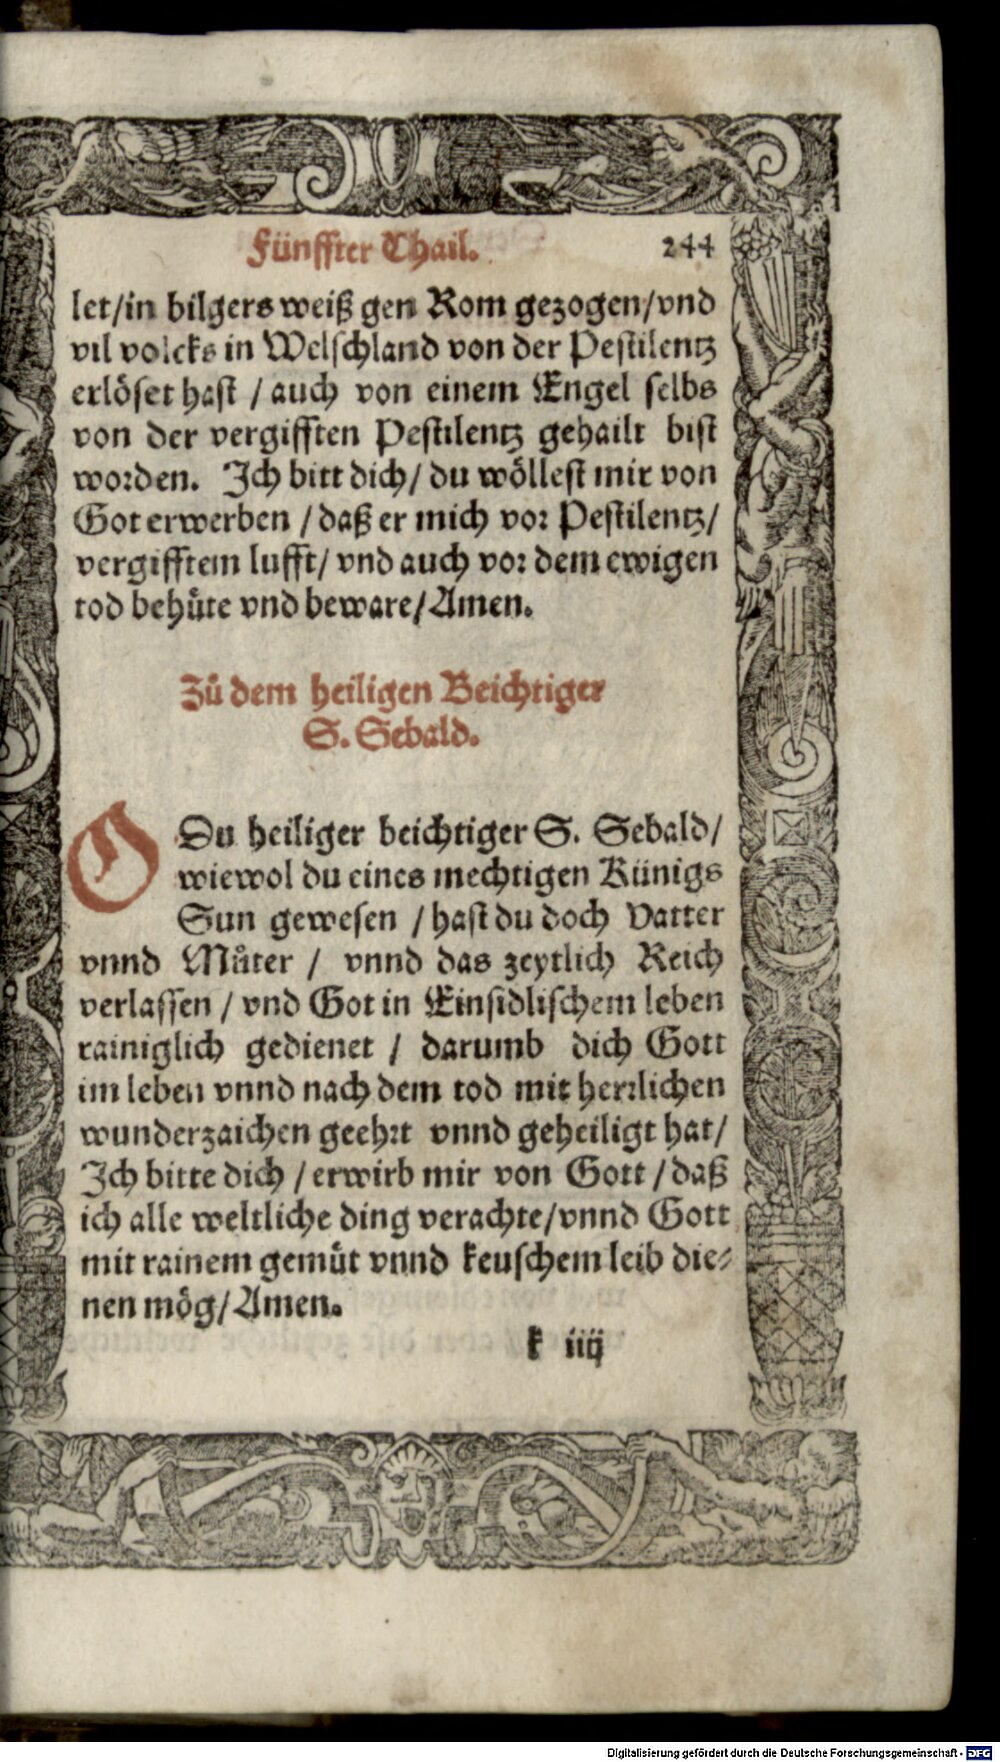 Fünffter Thail. 244
let/in bilgers weiß gen Rom gezogen/vnd
vil volcks in Welschland von der Pestilentz
erlöset hast / auch von einem Engel selbs
von der vergifften Pestilentz gehailt bist
worden. Ich bitt dich/ du wöllest mir von
Got erwerben / daß er mich vor Pestilentz/
vergifftem lufft/ vnd auch vor dem ewigen
tod behüte vnd beware/Amen.
Zů dem heiligen Beichtiger
S. Sebald.
O Du heiliger beichtiger S. Sebald/
wiewol du eines mechtigen Künigs
Sun gewesen / hast du doch Vatter
vnnd Můter / vnnd das zeytlich Reich
verlassen / vnd Got in Einsidlischem leben
rainiglich gedienet / darumb dich Gott
im leben vnnd nach dem tod mit herrlichen
wunderzaichen geehrt vnnd geheiligt hat/
Ich bitte dich / erwirb mir von Gott / daß
ich alle weltliche ding verachte/vnnd Gott
mit rainem gemüt vnnd keuschem leib die-
nen mög/Amen.
k iiij
Digitalisierung gefördert durch die Deutsche Forschungsgemeinschaft - DFG